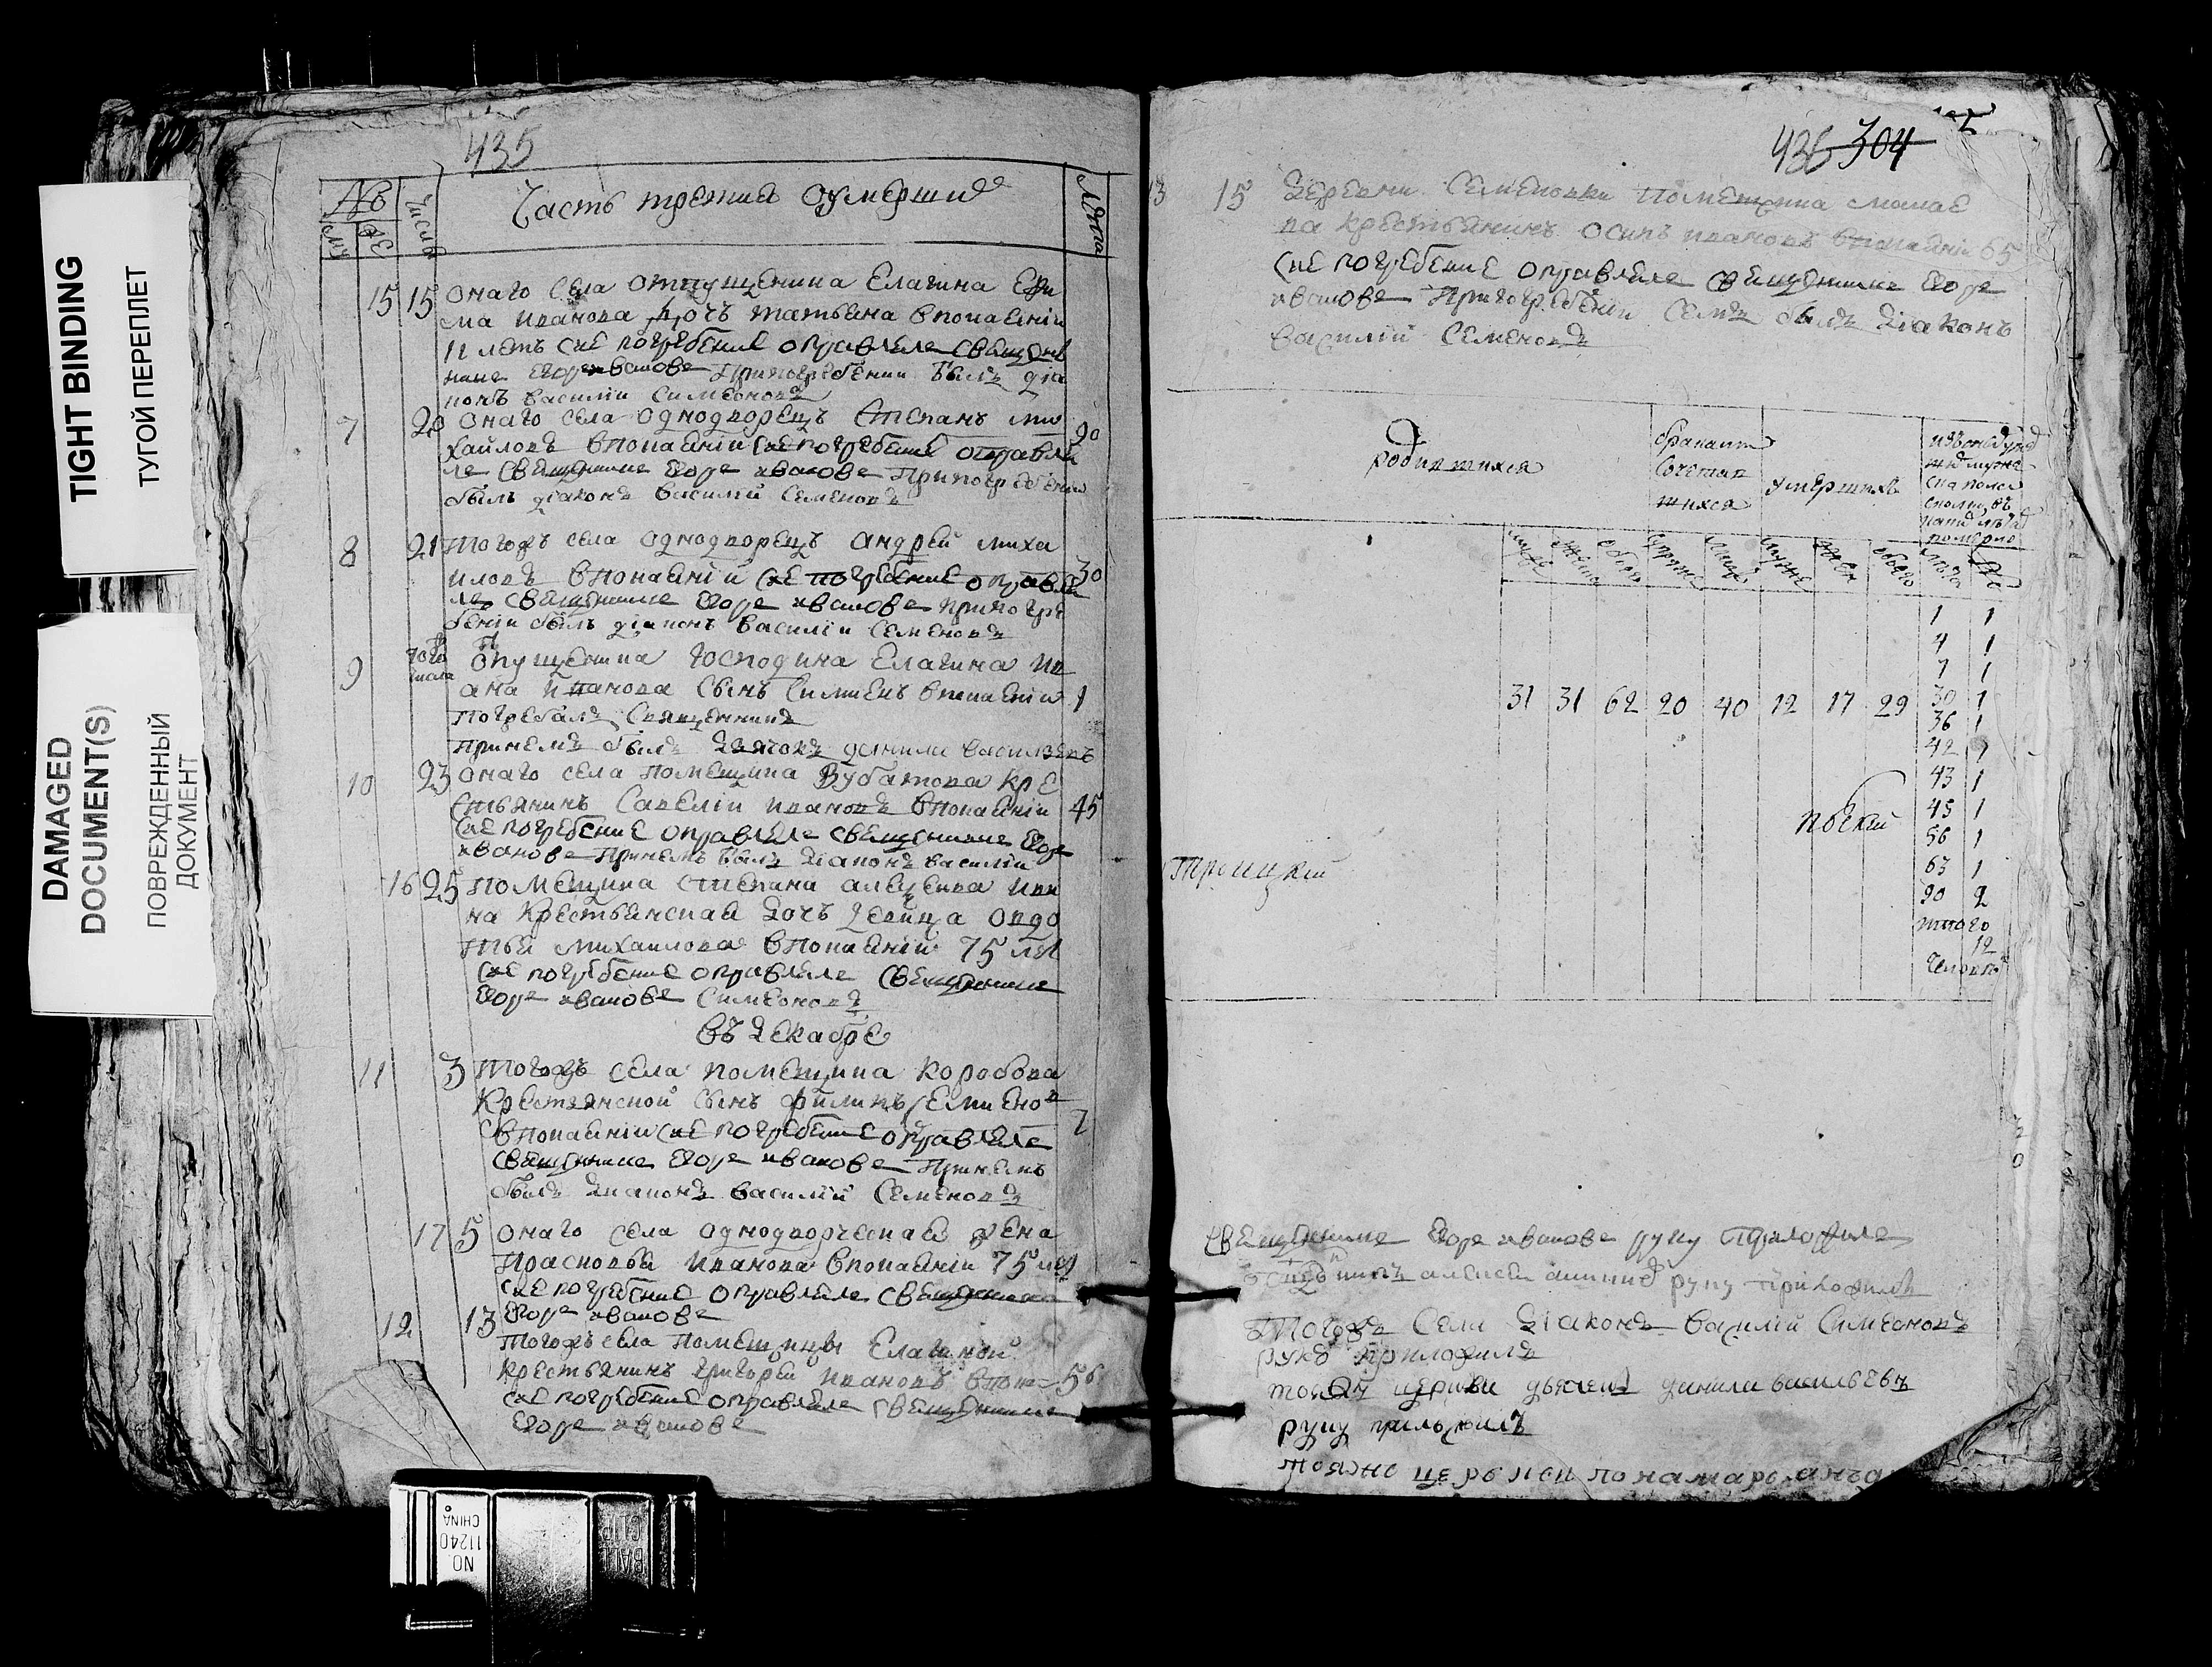 TIGHT BINDING
ТУГОЙ ПЕРЕПЛЕТ
DAMAGED
DOCUMENT(S)
ПОВРЕЖДЕННЫЙ
ДОКУМЕНТ
435
№
Число
Часть третия оумершие
Лѣта
15 15 онаго села отпущеника Елагина
ма иванова дочь татьяна впокаяніи
11 летъ сие погребение оправляле свещен
нике Егоре иванове Припогребении былъ діа
конъ василіи симеоновъ
7 20 онаго села однодворецъ Степанъ ми
хайловъ впокаяніи сие погребение отправля 90
ле свещеннике Егоре иванове Припогребении
былъ діаконъ василій Семеновъ
8 21 тогожъ села однодворецъ андрей миха
иловъ впокаяній сие погребение оправля 30
ле свещеннике Егоре иванове припогре
бении былъ діаконъ василіи семеновъ
9 того числа отпущеника господина Елагина ив
ана иванова сынъ Симиенъ впокаяніи 1
погребалъ Священникъ
принемъ былъ дьячокъ данила васильевъ
10 23 онаго села помещика Зубатова кре
стьянинъ Савелiи ивановъ впокаяніи 45
сие погребение оправляле свещеннике Егоре
иванове Принемъ былъ діаконъ василіи
16 25 помещика степана
на крестьянская дочь девица овдо
тья михаилова впокаяніи 75 лет
сие погребение оправляле свещеннике
Егоре иванове Симеоновъ
Въ декабре
11 3 тогожъ села помещика коробова
крестянской сынъ филипъ семиенов
впокаяніи сие погребение оправляле 7
свещеннике Егоре иванове Принемъ
былъ диаконъ василій Семеновъ
17 5 онаго села однодворческая жена
Прасковья иванова впокаяніи 75 лет
сие погребение оправляле свещеннике
12 13 Егоре иванове
тогожъ села помещицы Елагиной
крестьянинъ григореи ивановъ впока= 56
сие погребение оправляле свещеннике
Егоре иванове
436 304
13 15 деревни Семеновки помещика
ва крестьянинъ осипъ ивановъ впокаяніи 65
сие погребение оправляле свещеннике Егоре
иванове Припогребении семъ былъ діаконъ
василій Семеновъ
родившихся
бракаим
сочетав
шихся
умершихъ
померло
муже женъ обоего муже обоего лѣта
1 1
4 1
7 1
31 31 62 20 40 12 17 29 30 1
36 1
42 1
43 1
45 1
56 1
63 1
90 2
итого
12
человекъ
Троицкiи
свещеннике Егоре иванове руку приложиле
алексеи руку приложилъ
Тогожъ Села діаконъ василій Симеоновъ
руку приложилъ
тояжъ церкви дьячекъ данила васильевъ
руку приложилъ
тояже церкви понамарь
NO.
11240
CHINA